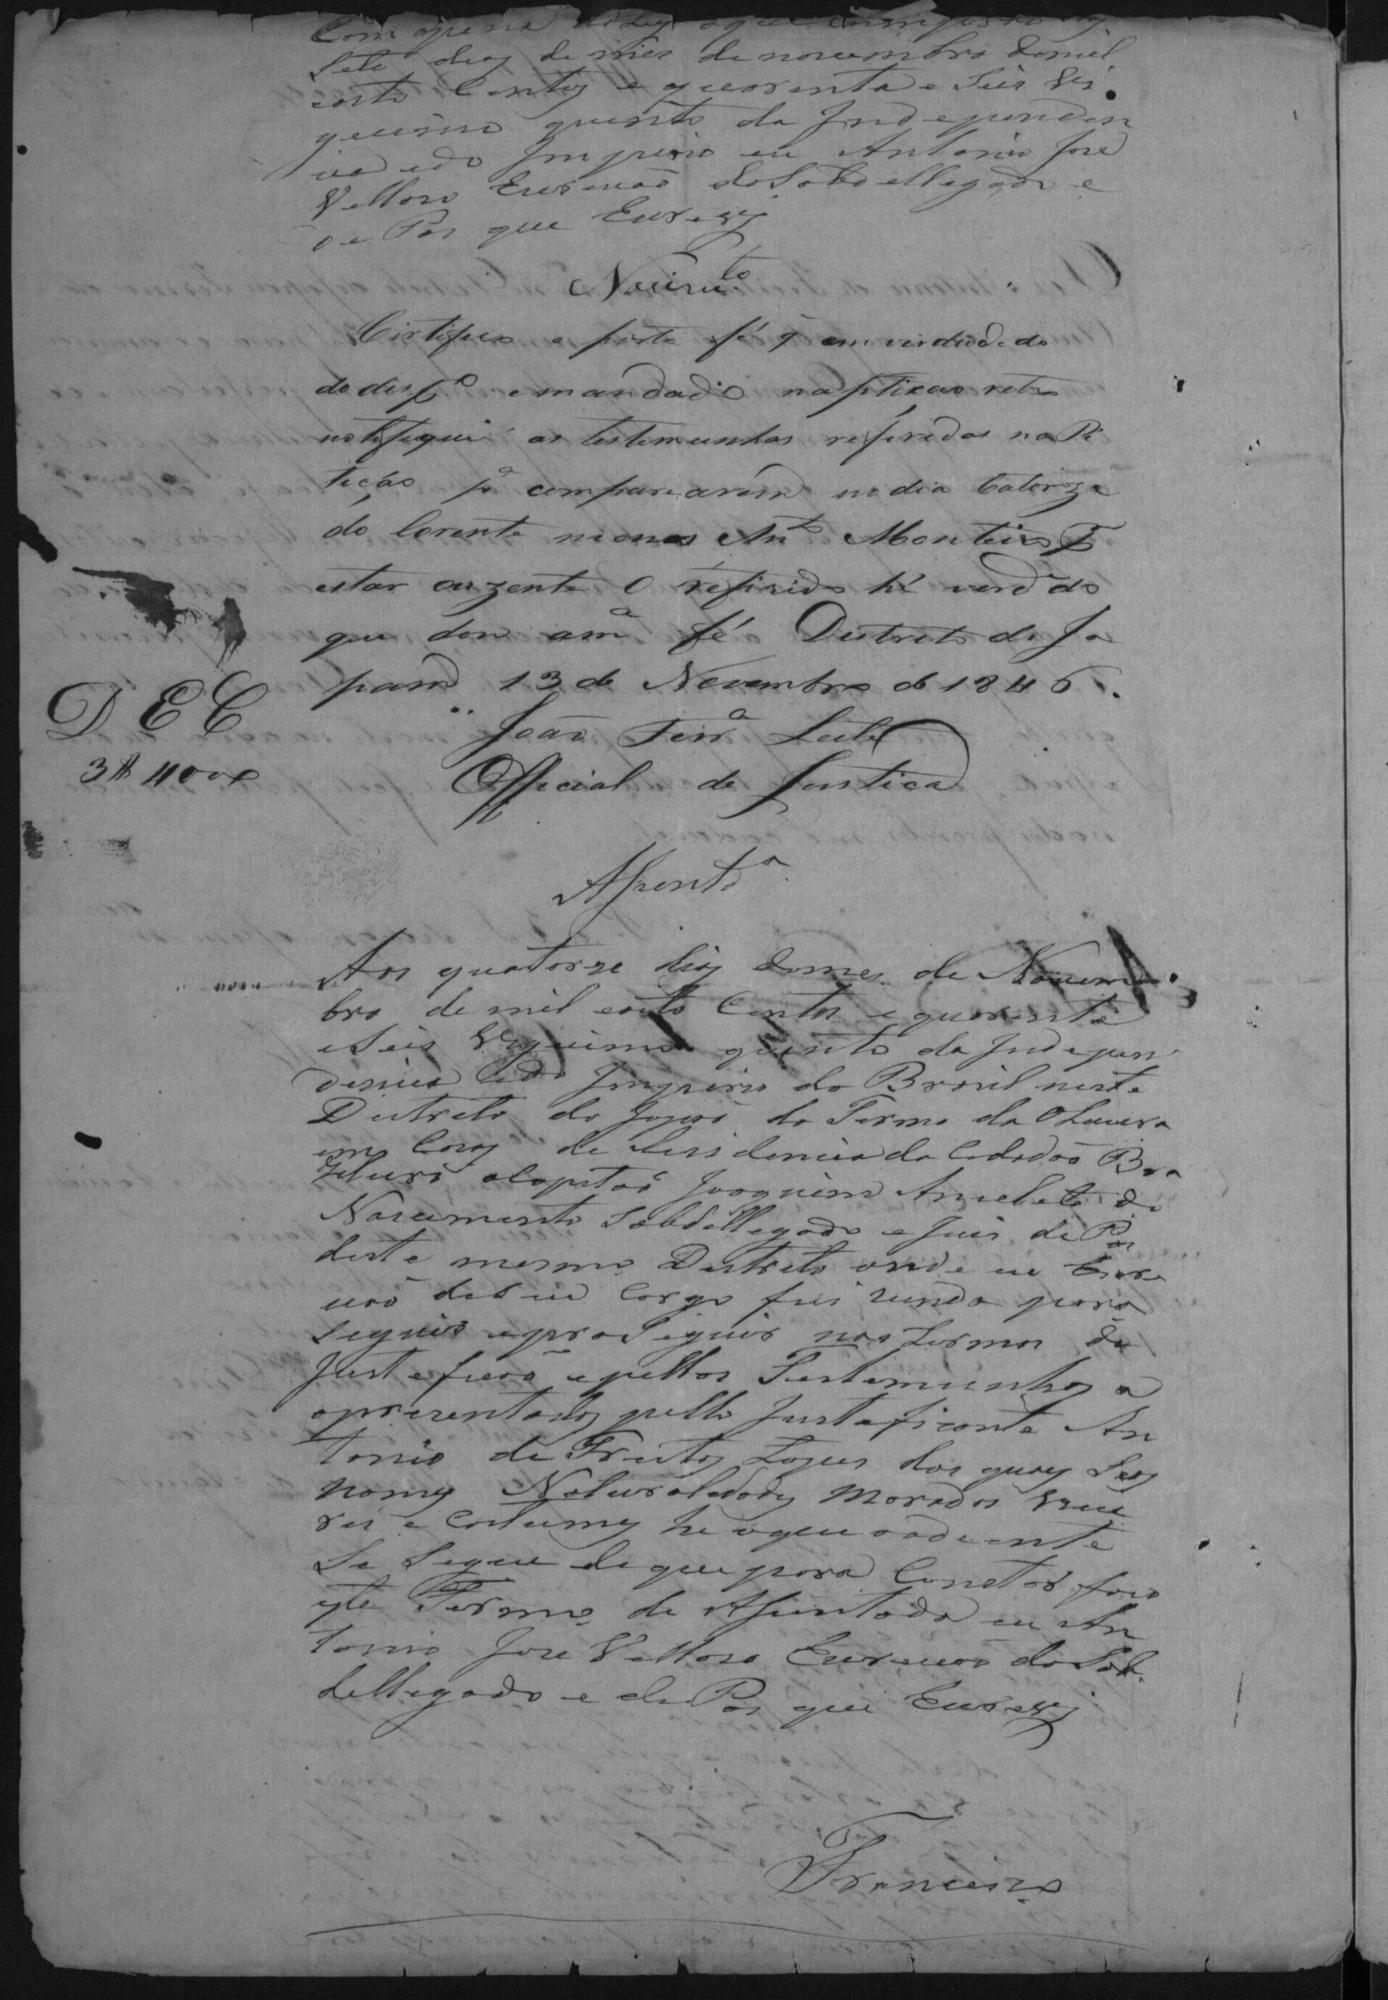 Sete dias do mes de novembro de mil
outo Centos e quarenta e Seis Vi
gecimo quinto da Independen
cia e do Imperio eu Antonio Jose
Vellozo Escrivaõ do Sobdellegado e
de Pas que Escrevj
Certefico e porto fé q em virdude do
do desp.º e mandado na pticaõ retro
notefiquei as testemunhas referedas na Pi
ticaõ p.ª comparecerem no dia Catorze
do Corente menos Ant.º Monteiro P
estar auzente O refirido hé verd.e do
que dou a m.ª fé Destreto do Ja
paraõ 13 de Novembro de 1846.
João Ferr.ª Leite
Official de Justica
D E C
3$400
Ajuntd.ª
Aos quatorze dias do mes de Novem
bro de mil outo Centos e quarenta
e Seis Vigecimo quinto da Indepen
dencia e do Imperio do Brasil neste
Destreto do Japaõ do Termo da Oliveira
em Casas de Residencia do Cidadaõ Bra
zileiro o Capitaõ Joaquim Anacleto do
Nascimento Sobdellegado e Juis de Pas
deste mesmo Destreto onde eu Escre
vaõ de seu Cargo fui vindo para
Seguir e proseguir nos termos de
Justeficaõ e pellos Testemunhas a
apresentados pello Justeficante An
tonio de Freitas Lopes dos quaes Seos
Nomes Naturaledades Moradas Vive
res e Costumes he o que oadiante
Se Segue de que para Constar faço
este Termo de Ajuntada eu An
tonio Jose Vellozo Escrevaõ do Sob
dellegado e de Pas que Escrevj
Francisco